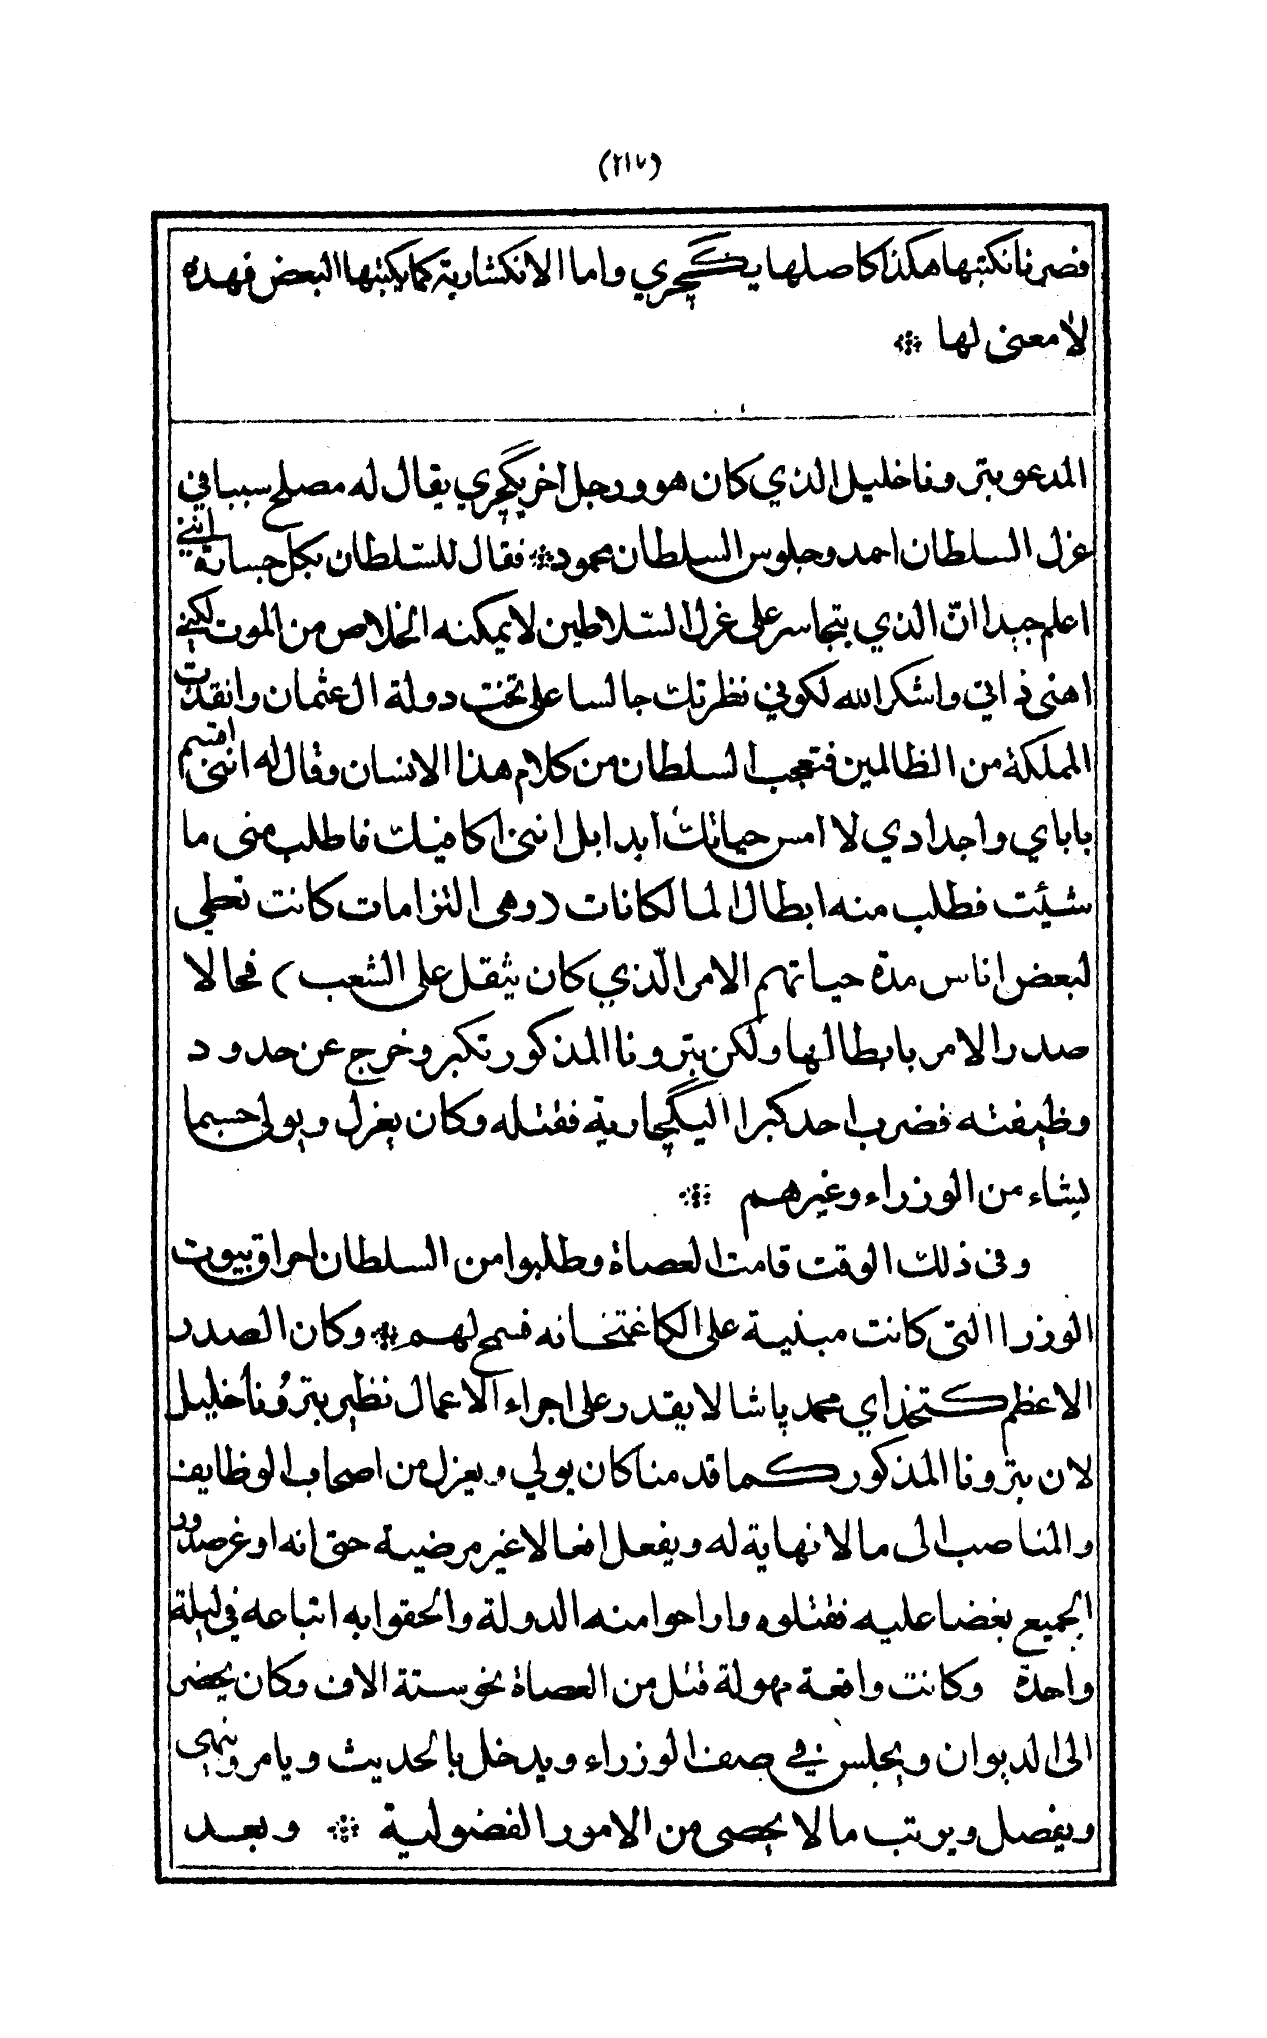 (٢١٧)
فصرنا نكتبها هكذا كاصلها يكيچري واما الانكشارية كما يكتبها البعض فهذه
لا معنى لها ※
المدعو بترونا خليل الذي كان هو ورجل اخر يكچري يقال له مصلح سببا في
عزل السلطان احمد وجلوس السلطان محمود ※ فقال للسّلطان بكل جسارة انني
اعلم جيدا انّ الذي يتجاسر على عزل السّلاطين لا يمكنه الخلاص من الموت لكني
اهنى ذاتي واشكر الله لكوني نظرتك جالسا على تخت دولة ال عثمان وانقذت
المملكة من الظالمين فتعجب السلطان من كلام هذا الانسان وقال له انني اقسم
باباي واجدادي لا امس حياتك ابدا بل انني اكافيك فاطلب مني ما
شيئت فطلب منه ابطال المالكانات (وهى التزامات كانت تعطي
لبعض اناس مدّة حياتهم الامر الّذي كان يثقل على الشعب) فحالا
صدر الامر بابطالها ولكن بترونا المذكور تكبر وخرج عن حدود
وظيفته فضرب احد كبرا اليگچارية فقتله وكان يعزل ويولي حسبما
يشاء من الوزراء وغيرهم ※
وفى ذلك الوقت قامت العصاة وطلبوا من السلطان احراق بيوت
الوزرا التى كانت مبنية على الكاغتخانه فسمح لهم ※ وكان الصدر
الاعظم كتخذاي محمد پاشا لا يقدر على اجراء الاعمال نظير بترونا خليل
لان بترونا المذكور كما قدمنا كان يولي ويعزل من اصحاب الوظايف
والمناصب الى ما لا نهاية له ويفعل افعالا غير مرضية حتى انه اوغر صدور
الجميع بغضا عليه فقتلوه واراحوا منه الدولة والحقوا به اتباعه في ليلة
واحدة وكانت واقعة مهولة قتل من العصاة نحو ستة الاف وكان يحضر
الى الديوان ويجلس في صف الوزراء ويدخل بالحديث ويامر وينهي
ويفصل ويرتب ما لا يحصى من الامور الفضولية ※ وبعد